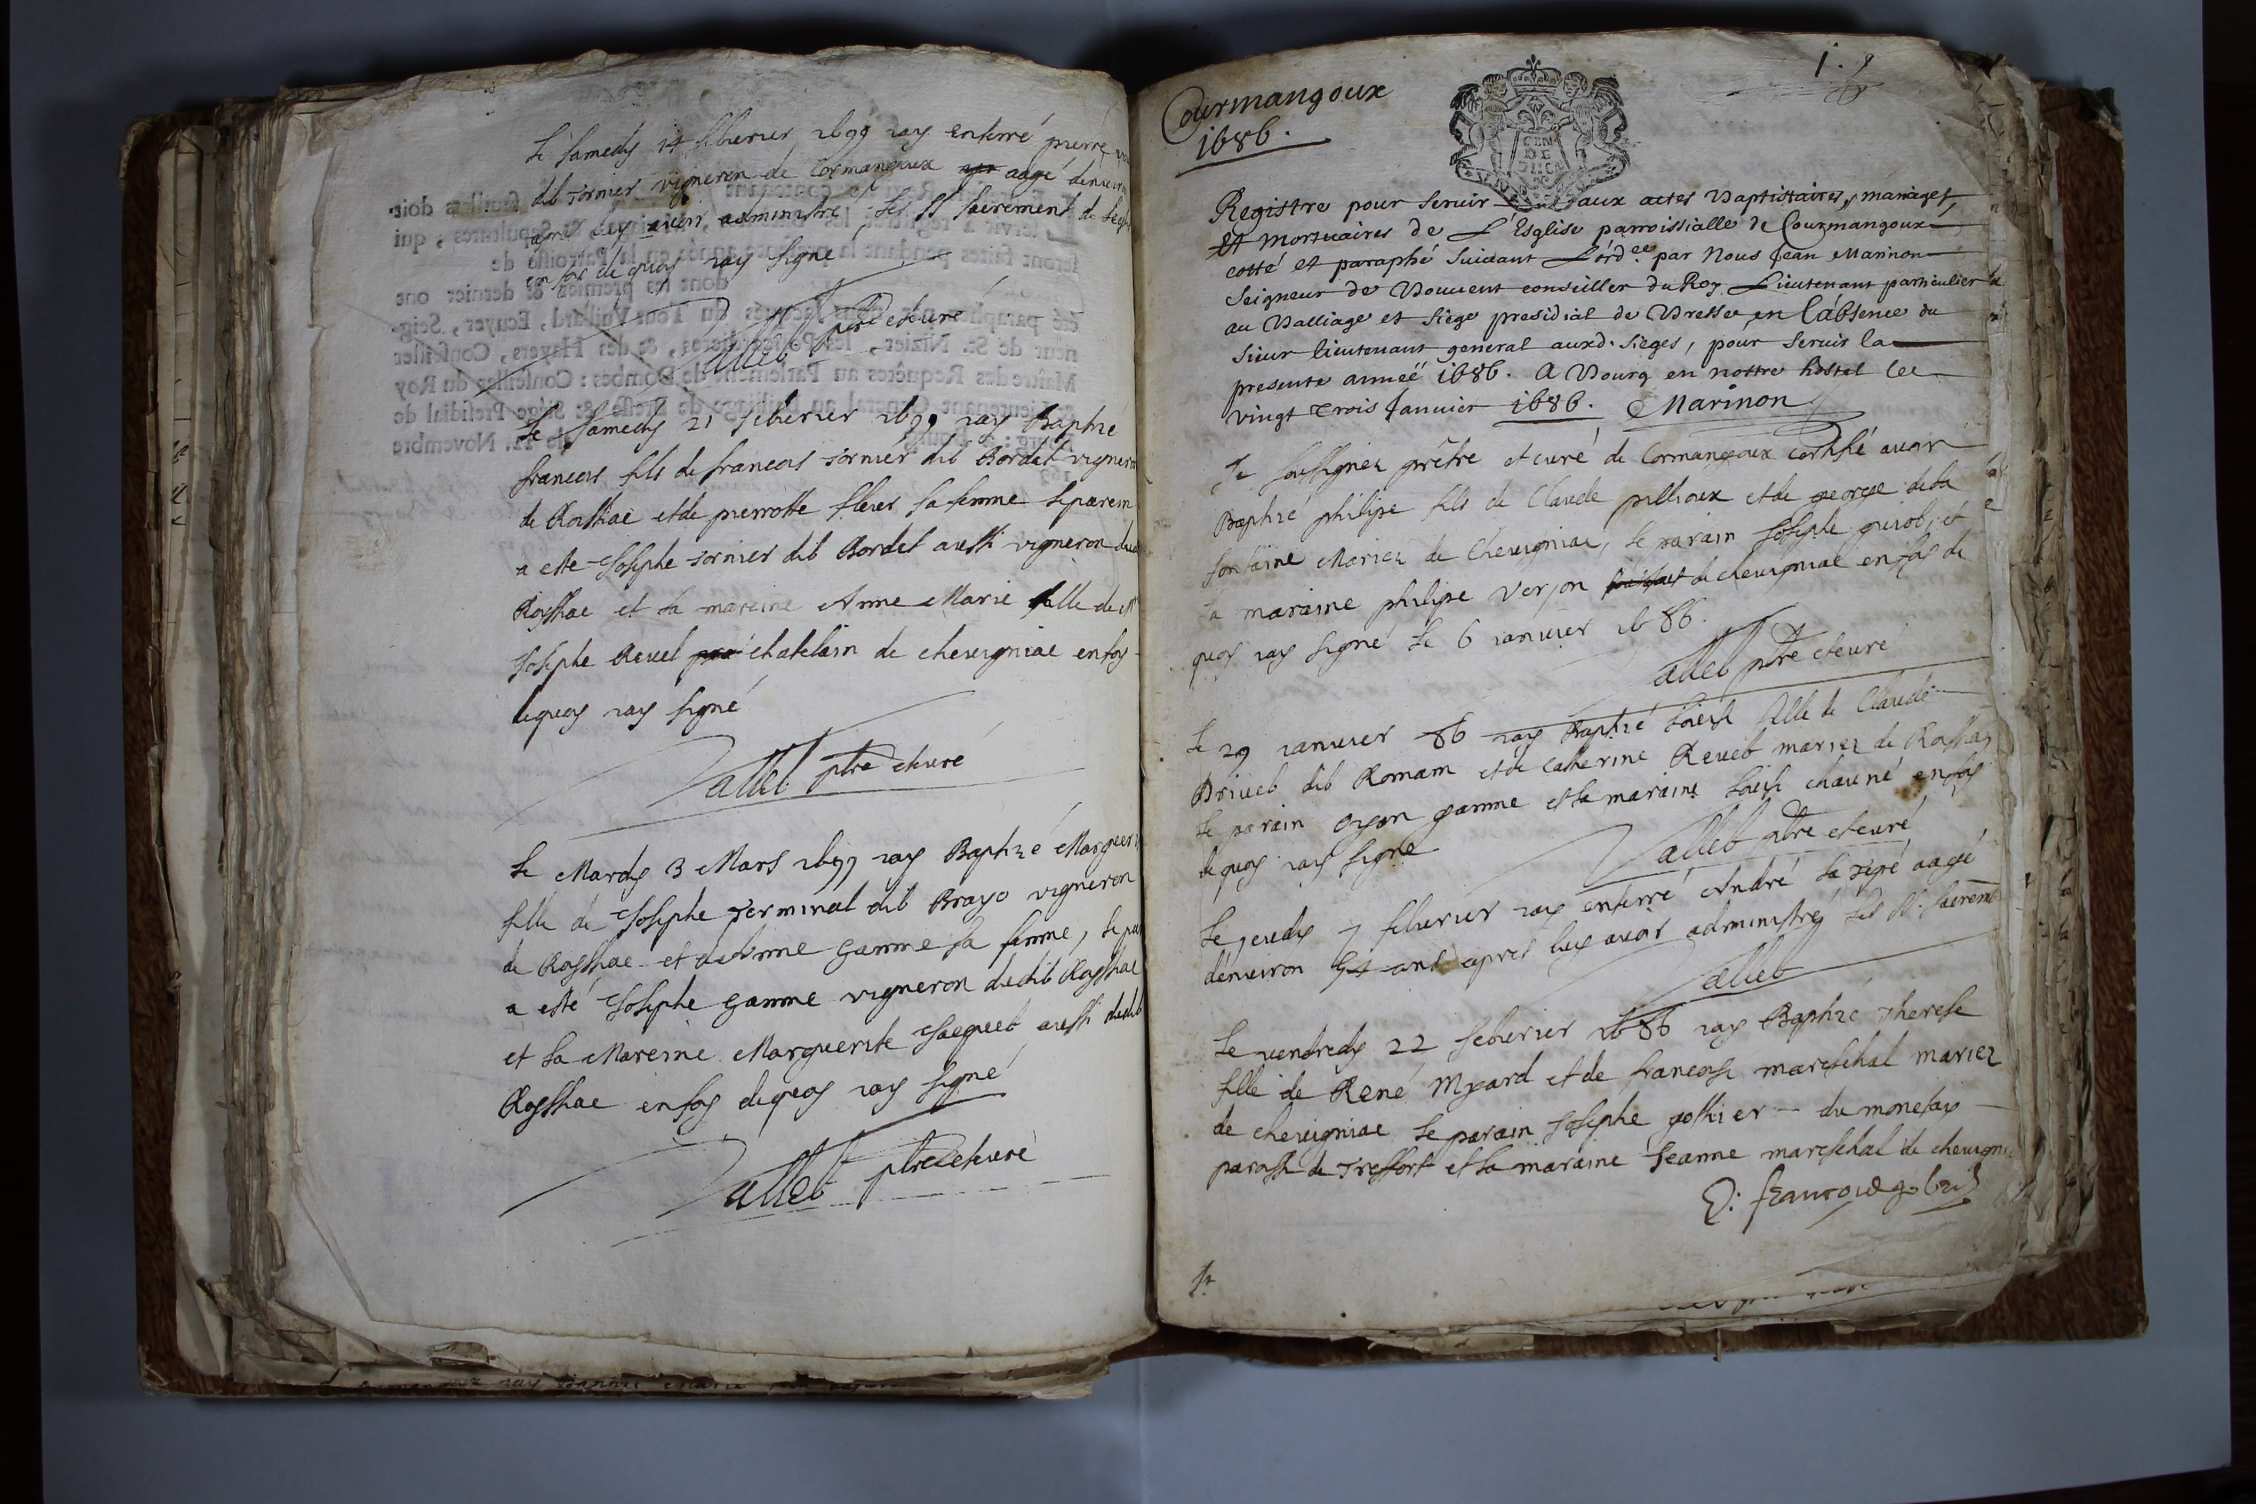 le samedy 14 februier 1699 iay enterré pierre
dit Tornier vigneron de Cormangoux aagé denviron
apres luy avoir administré les SS sacrement de
en foy de quoy iay signé
Vallet ptre et curé
Le samedy 21 februier 1699 iay Baptizé
francois fils de francois Tornier dit Bordet vigneron
de Rossiac et de pierrotte sa femme le parein
a esté Josephe Tornier dit Bordet aussi vigneron
Rossiac et la mareine Anne Marie fille de
Josephe Revel chatelain de chevigniac en foy
de quoy iay signé
Vallet ptre et curé
le Mardy 3 Mars 1699 iay Baptizé
fille de Josephe Perminal dit Brayo vigneron
de Rossiac et de Anne Gamme sa femme, le
a esté Josephe Gamme vigneron dudit Rossiac
et la Mareine Marguerite Jacquet aussi dudit
Rossiac en foy de quoy iay signé
Vallet ptre et curé
1.
Courmangoux
1686.
GEN
DE
Registre pour servir aux actes Baptistaires, mariages
Et Mortuaires de L'Esglise parroissialle de Courmangoux
cotté et paraphé suivant L'ord.ce par Nous Jean Marinon
Seigneur de Bouvent conseiller du Roy Lieutenant particulier
au Balliage et Siege presidial de Bresse en l'absence du
Sieur lieutenant general auxd. sieges, pour servir la
presente anneé 1686. A Bourg en nostre hostel le
vingt Trois Janvier 1686. Marinon
Je soussignez prêtre et curé de Cormangoux certifié avoir
Baptizé philipe fils de Claude pillioux et de george de la
fontaine Mariez de Chevigniac, le parain Josephe guiot, et
la maraine philipe Verjon de chevigniac en foy de
quoy iay signé le 6 ianvier 1686.
Vallet ptre et curé
le 29 ianvier 86 iay Baptizé fille de Claude
Brivet dit Romam et de Catherine Revet mariez de
le parain oyan gamme et la maraine chauné en foy
de quoy iay signé
Vallet ptre et curé
Le jeudy 7 februier iay enterré André aagé
denviron 54 ans apres luy avoir administré les SS. sacremt
Vallet
Le vendredy 22 februier 1686 iay Baptizé Therese
fille de René Myard et de francoise mareschal mariez
de chevigniac le parain Josephe gottier du monefay
paroisse de Treffort et la maraine Jeanne mareschal de